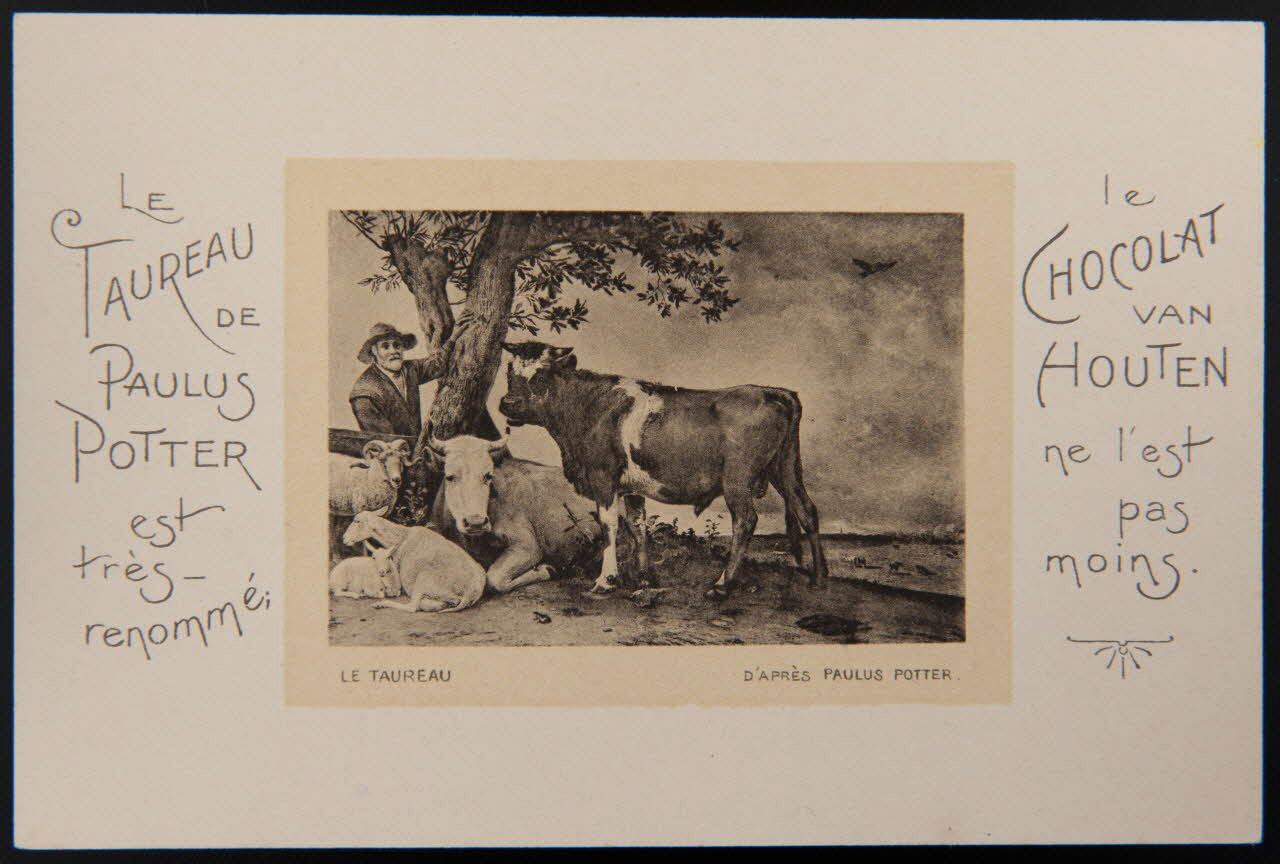 LE
TAUREAU
DE
PAULUS
POTTER
est
très-
renommé;
LE TAUREAU
D'APRÈS PAULUS POTTER.
le
CHOCOLAT
VAN
HOUTEN
ne l'est
pas
moins.